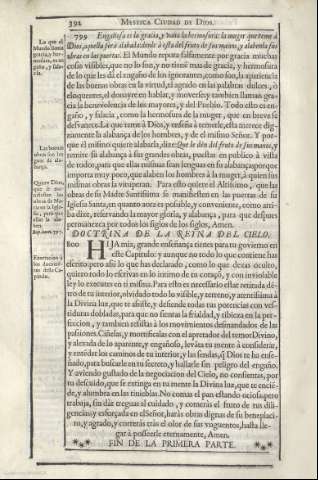 392 MYSTICA CIUDAD DE DIOS.
799 Engañosa es la gracia, y vana la hermosura: la muger que teme à
Dios, aquella será alabada: dende à esta del fruto de sus manos, y alabenla sus
obras en las puertas. El Mundo reputa falsamente por gracia muchas
cosas visibles, que no lo son, y no tienẽ mas de gracia, y hermosura
de lo que les dà el engaño de los ignorantes, como son, la apariencia
de las buenas obras en la virtud, el agrado en las palabras dulces, ò
eloquentes, el donayre en hablar, y moverse; y tambien llaman gracia
la benevolencia de los mayores, y del Pueblo. Todo esto es engaño,
y falacia, como la hermosura de la muger, que en breve se
desvanece. La que teme à Dios, y enseña à temerle, esta merece dignamente
la alabança de los hombres, y de el mismo Señor. Y porque
el mismo quiere alabarla, dize: Que le dèn del fruto de sus manos, y
remite su alabança à sus grandes obras, puestas en publico à vista
de todos, para que ellas mismas sean lenguas en su alabança; porque
importa muy poco, que alaben los hombres à la muger, à quien sus
mismas obras la vituperan. Para esto quiere el Altissimo, que las
obras de su Madre Santissima se manifiesten en las puertas de su
Iglesia Santa, en quanto aora es posible, y conveniente, como arriba
dixe, reservando la mayor gloria, y alabança, para que despues
permanezca por todos los siglos de los siglos, Amen.
DOCTRINA DE LA REINA DEL CIELO.
800 HIJA mia, grande enseñança tienes para tu govierno en
este Capitulo: y aunque no todo lo que contiene has
escrito; pero assi lo que has declarado, como lo que dexas oculto,
quiero todo lo escrivas en lo intimo de tu coraçõ, y con inviolable
ley lo executes en ti misma. Para esto es necessario estar retirada dentro
de tu interior, olvidado todo lo visible, y terreno, y atentissima à
la Divina luz, que te assiste, y defiende todas tus potencias con vestiduras
dobladas, para que no sientas la frialdad, y tibieza en la perfeccion,
y tambien resistas à los movimientos desmandados de las
passiones. Ciñelas, y mortificalas con el apretador del temor Divino,
y alexada de lo aparente, y engañoso, levãta tu mente à considerar,
y entẽder los caminos de tu interior, y las sendas, q̃ Dios te ha enseñado,
para buscarle en tu secreto, y hallarle sin peligro del engaño.
Y aviendo gustado de la negociacion del Cielo, no consientas, por
tu descuido, que se extinga en tu mente la Divina luz, que te enciende,
y alumbra en las tinieblas. No comas el pan estando ociosa; pero
trabaja, sin dàr treguas al cuidado, y comeràs el fruto de tus diligencias;
y esforçada en el Señor, haràs obras dignas de su beneplacito,
y agrado, y correràs tras el olor de sus vnguentos, hasta llegar
à posseerle eternamente, Amen.
FIN DE LA PRIMERA PARTE.